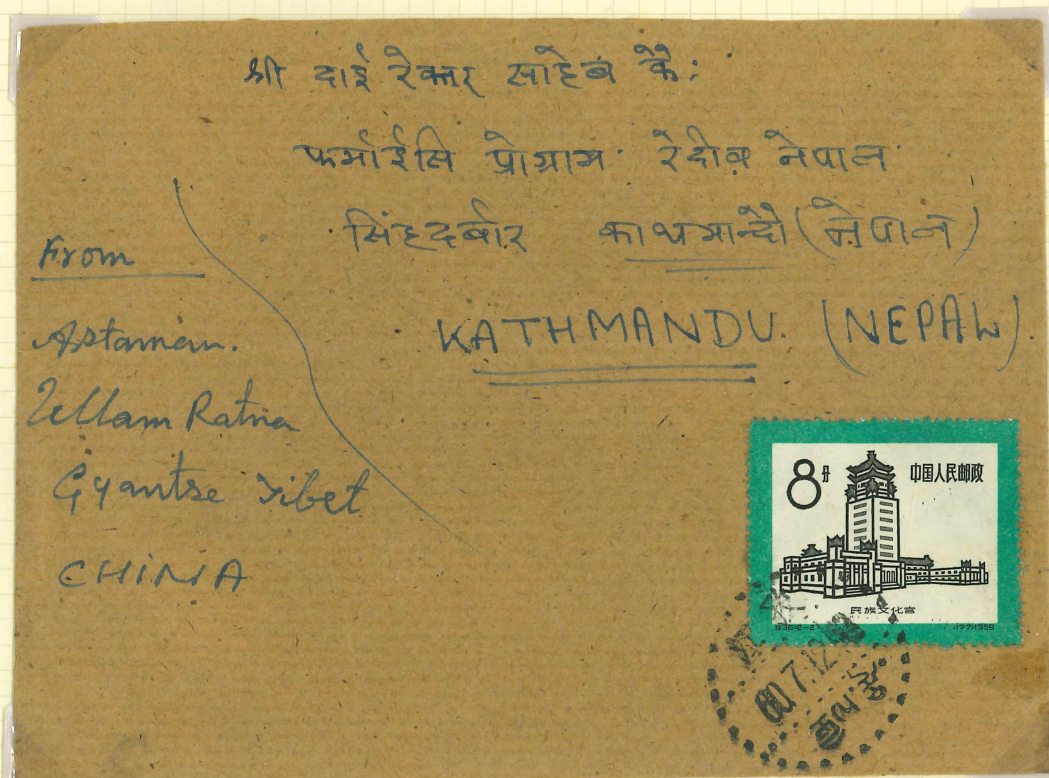 श्री दाई रेक्तर साहेब कै:
फर्माईसि प्रोग्राम रेदीव नेपाल
सिंहदर्बार काथमान्दौ (नेपाल)
From
KATHMANDU. (NEPAL)
Astaman.
Ratna
Gyantse Tibet
CHINA
8分 中国人民邮政
民族文化宫
60.7.12